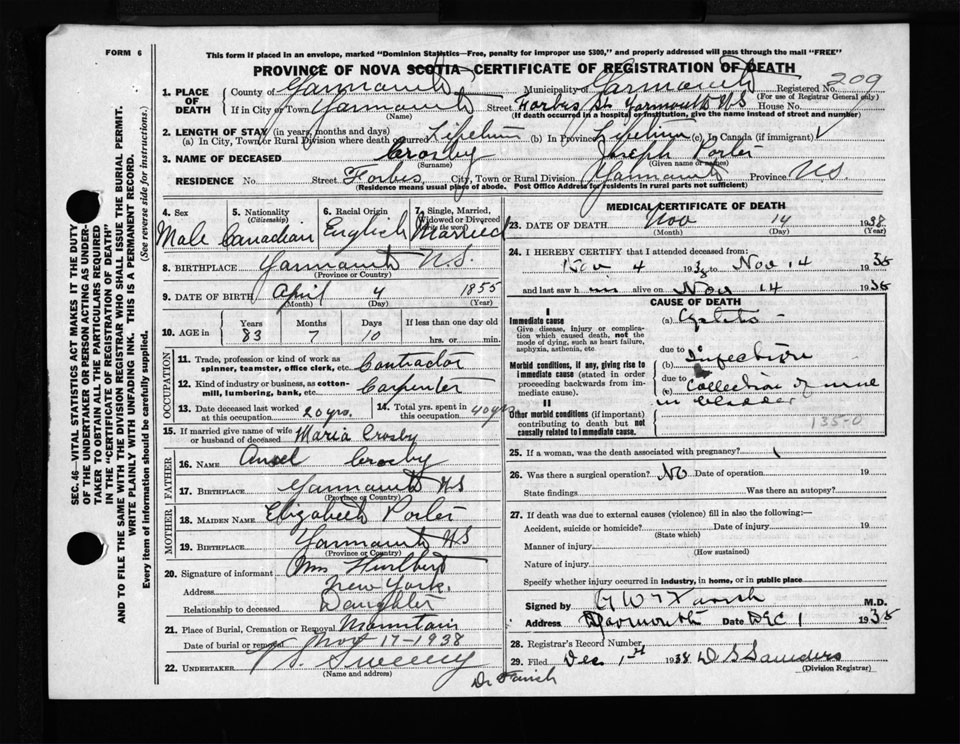 FORM 6
This form if placed in an envelope, marked "Dominion Statistics—Free, penalty for improper use $300," and properly addressed will pass through the mail "FREE"
PROVINCE OF NOVA SCOTIA—CERTIFICATE OF REGISTRATION OF DEATH
209
1. PLACE OF DEATH County of Yarmouth Municipality of Yarmouth Registered No.
(For use of Registrar General only)
If in City or Town Yarmouth Street Forbes St Yarmouth N S House No.
(Name) (If death occurred in a hospital or institution, give the name instead of street and number)
2. LENGTH OF STAY (in years, months and days)
(a) In City, Town or Rural Division where death occurred Lifetime (b) In Province Lifetime (c) In Canada (if immigrant)
3. NAME OF DECEASED Crosby Joseph Porter
(Surname) (Given name or names)
RESIDENCE No. Street Forbes City, Town or Rural Division Yarmouth Province N.S.
(Residence means usual place of abode. Post Office Address for residents in rural parts not sufficient)
4. Sex Male
5. Nationality (Citizenship) Canadian
6. Racial Origin English
7. Single, Married, Widowed or Divorced (write the word) Married
8. BIRTHPLACE Yarmouth N.S.
(Province or Country)
9. DATE OF BIRTH April 4 1855
(Month) (Day) (Year)
10. AGE in Years 83 Months 7 Days 10 If less than one day old hrs. or min.
OCCUPATION
11. Trade, profession or kind of work as spinner, teamster, office clerk, etc. Contractor
12. Kind of industry or business, as cotton-mill, lumbering, bank, etc. Carpenter
13. Date deceased last worked at this occupation 20 yrs.
14. Total yrs. spent in this occupation 40 yrs
15. If married give name of wife or husband of deceased Maria Crosby
FATHER
16. NAME Ansel Crosby
17. BIRTHPLACE Yarmouth N S
(Province or Country)
MOTHER
18. MAIDEN NAME Elizabeth Porter
19. BIRTHPLACE Yarmouth N S
(Province or Country)
20. Signature of informant Mrs Hurlbert
Address New York.
Relationship to deceased Daughter
21. Place of Burial, Cremation or Removal Mountain
Date of burial or removal Nov 17-1938
22. UNDERTAKER Sweeny
(Name and address)
Dr Farish
MEDICAL CERTIFICATE OF DEATH
23. DATE OF DEATH Nov 14 1938
(Month) (Day) (Year)
24. I HEREBY CERTIFY that I attended deceased from
Nov 4 1938 to Nov 14 1938
and last saw h im alive on Nov 14 1938
CAUSE OF DEATH
I
Immediate cause (a) Cystitis
Give disease, injury or complication which caused death, not the mode of dying, such as heart failure, asphyxia, asthenia, etc.
due to
Morbid conditions, if any, giving rise to immediate cause (stated in order proceeding backwards from immediate cause). (b) Infection
due to
(c) Collection of urine in bladder
II
Other morbid conditions (if important) contributing to death but not causally related to immediate cause.
135-0
25. If a woman, was the death associated with pregnancy?
26. Was there a surgical operation? No Date of operation 19
State findings Was there an autopsy?
27. If death was due to external causes (violence) fill in also the following:—
Accident, suicide or homicide? Date of injury 19
(State which)
Manner of injury
(How sustained)
Nature of injury
Specify whether injury occurred in industry, in home, or in public place
Signed by G W T Farish M.D.
Address Yarmouth Date DEC 1 1938
28. Registrar's Record Number
29. Filed Dec 1st 1938 D S Saunders
(Division Registrar)
SEC. 46—VITAL STATISTICS ACT MAKES IT THE DUTY
OF THE UNDERTAKER OR PERSON ACTING AS UNDER-
TAKER TO OBTAIN ALL THE PARTICULARS REQUIRED
IN THE "CERTIFICATE OF REGISTRATION OF DEATH"
AND TO FILE THE SAME WITH THE DIVISION REGISTRAR WHO SHALL ISSUE THE BURIAL PERMIT.
WRITE PLAINLY WITH UNFADING INK. THIS IS A PERMANENT RECORD.
Every item of information should be carefully supplied. (See reverse side for instructions.)